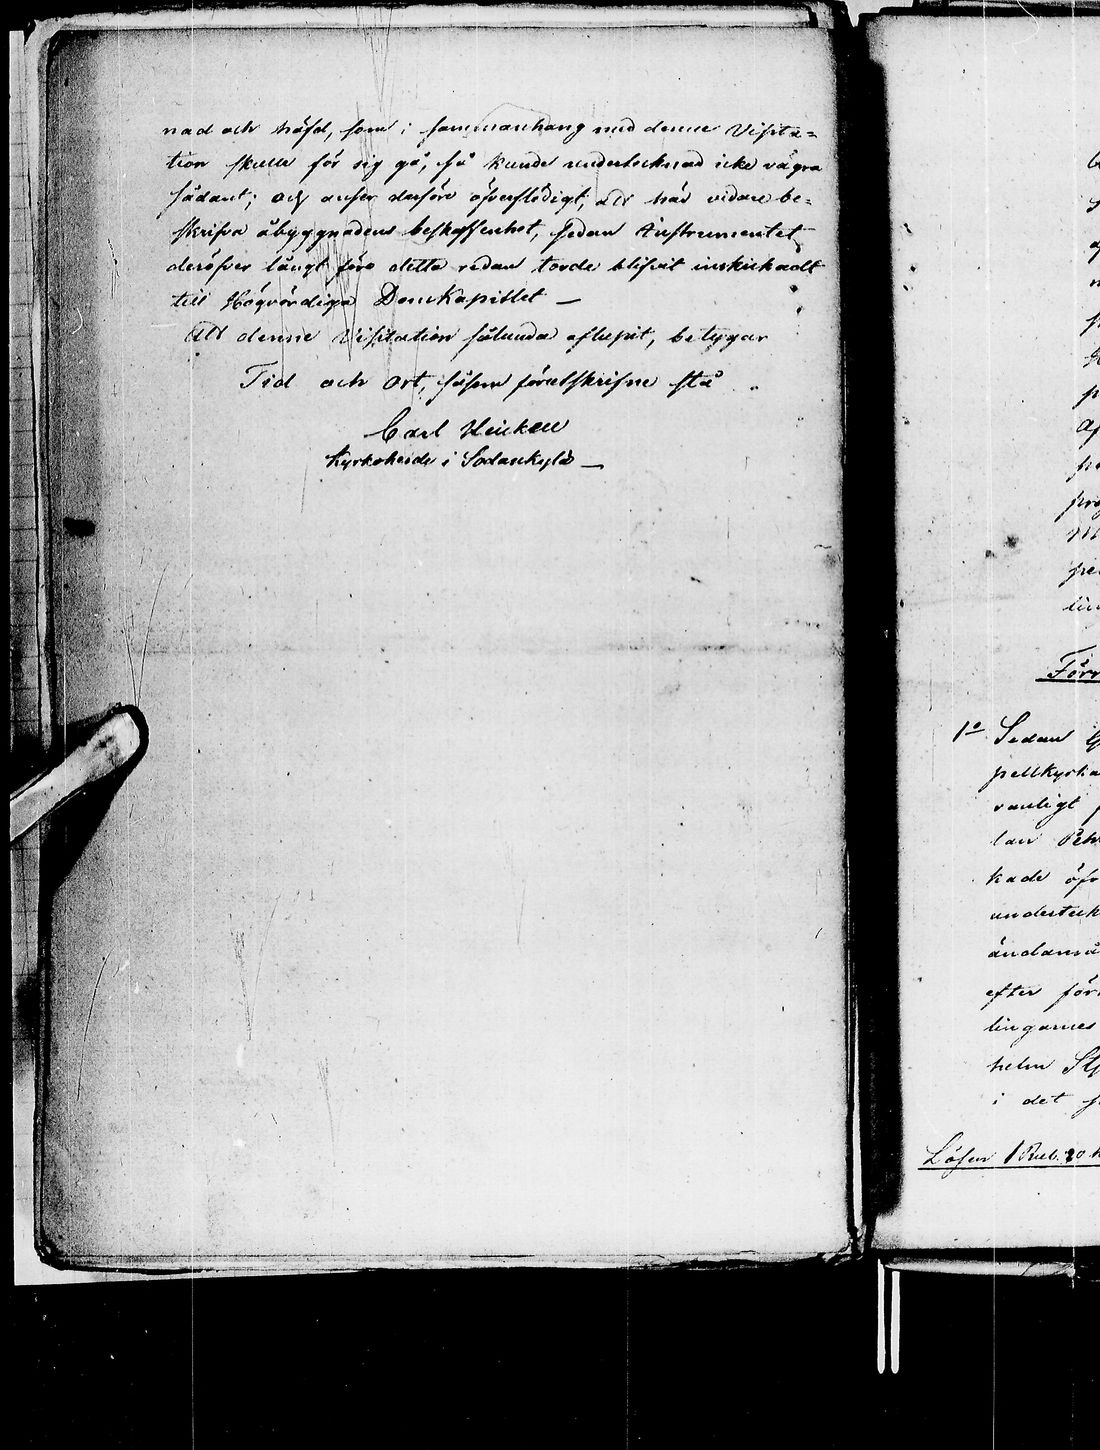 nad och häfd, som i sammanhang med denne Visita=
tion skulle för sig gå, så kunde undertecknad icke vägra
sådant; och anser derföre öfverflödigt, att här vidare be=
skrifva åbyggnadens beskaffenhet, sedan Instrumentet
deröfver långt före detta redan torde blifvit inskickadt
till Högvördiga DomKapitlet —
Att denne Visitation sålunda aflupit, betygar
Tid och Ort, såsom förutskrifne stå
Carl Heickell
Kyrkoherde i Sodankylä —
Förr
1o Sedan
pellkyrka
vanligt
lan Pehr
kade öfv
underteck
ändamå
efter för
lingarnes
helm
i det
Lösen 1 Rub. 20 k